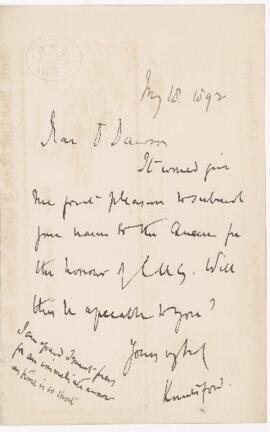 May 18. 1892
Dear Dr Dawson
It would give
me great pleasure to submit
your name to the Queen for
the honour of C.M.G. Will
this be agreeable to you?
Yours
Knutsford.
I am afraid I must press
for an immediate answer
as time is so short